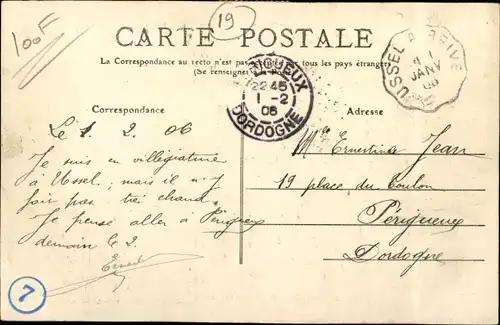 100F
19
CARTE POSTALE
La Correspondance au recto n'est pas acceptée par tous les pays étrangers
(Se renseigner à la Poste)
PÉRIGUEUX
22 45
1 - 2
06
DORDOGNE
USSEL A BRIVE
1
JANV
06
Correspondance
Adresse
Le 1. 2. 06
Je suis en villégiature
à Ussel, mais il n'y
fait pas très chaud.
Je pense aller à Périgueux
demain le 2.
Ernest
Mlle Ernestine Jean
19 place du Coulon
Périgueux
Dordogne
7